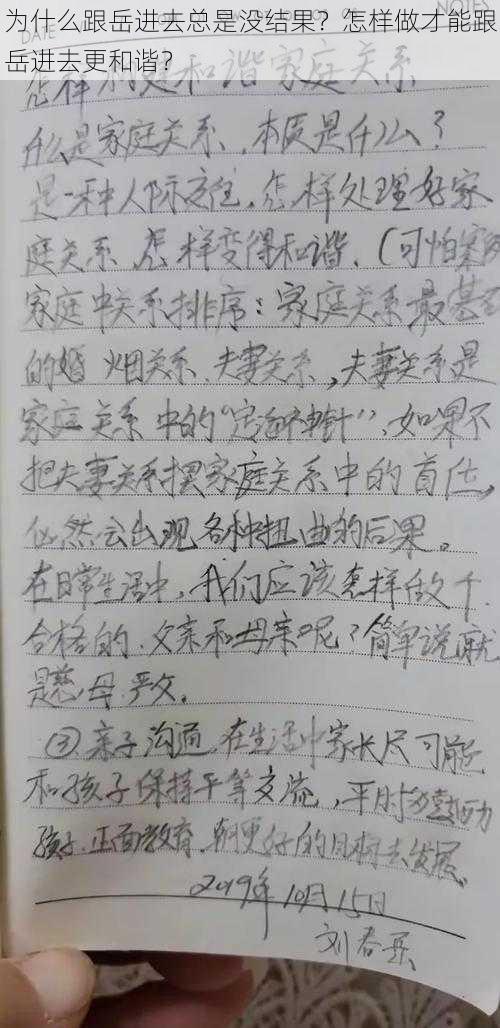 为什么跟岳进去总是没结果？怎样做才能跟
岳进去更和谐？
DATE
怎样构建和谐家庭关系
什么是家庭关系,本质是什么?
是一种人际交往,怎样处理好家
庭关系 怎样变得和谐.(可怕
家庭中关系排序:家庭关系最
的婚姻关系.夫妻关系,夫妻关系是
家庭关系中的"定海神针",如果不
把夫妻关系摆家庭关系中的首位,
必然会出现各种扭曲的后果。
在日常生活中,我们应该怎样做个
合格的.父亲和母亲呢?简单说就
是慈母.严父。
③亲子沟通.在生活中家长尽可能
和孩子保持平等交流,平时多鼓励
孩子.正面教育.朝更好的目标去发展。
2019年10月15日
刘春